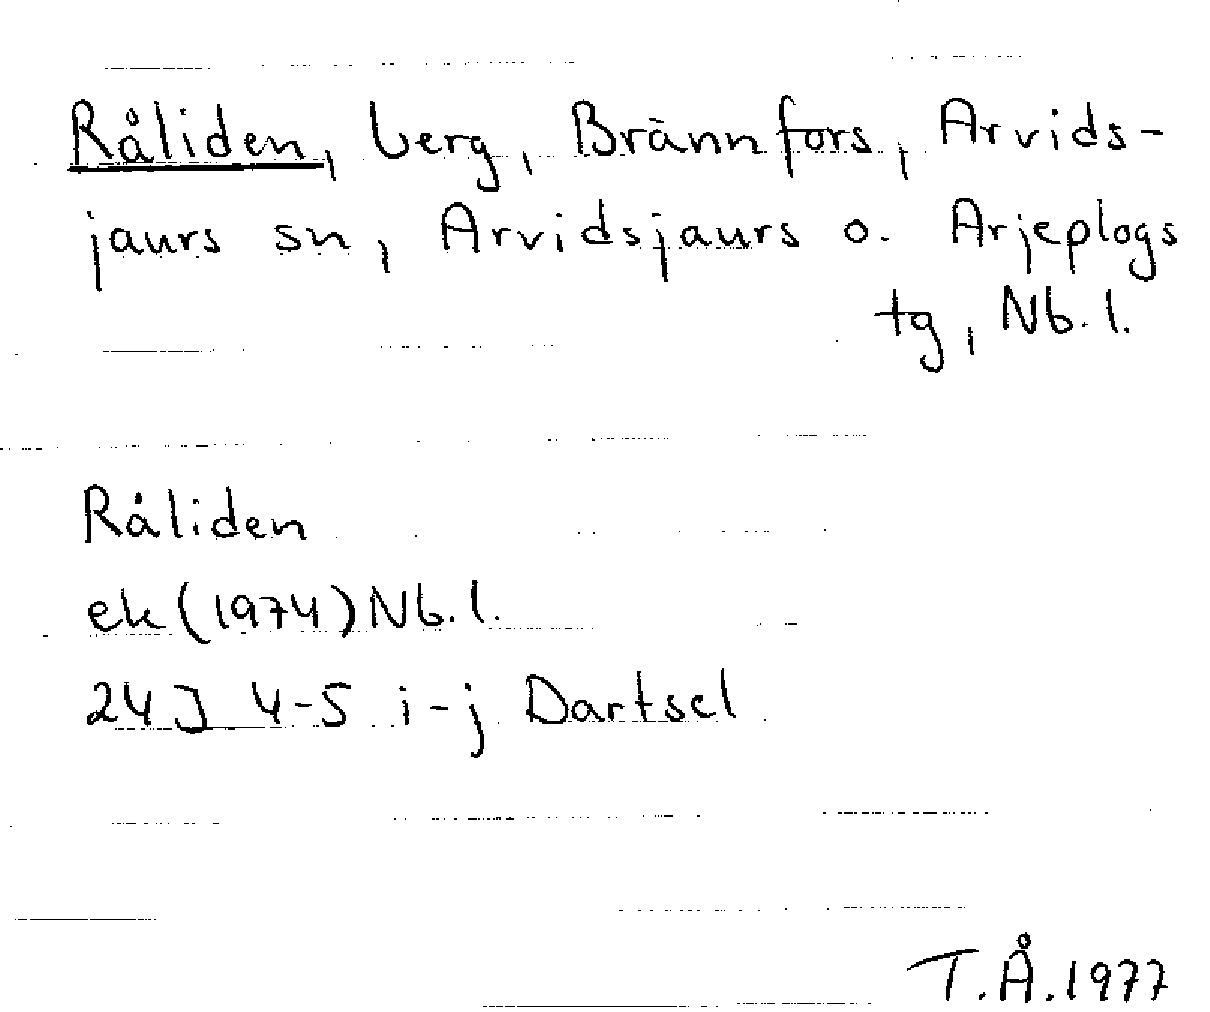 Råliden, berg, Brännfors, Arvids-
jaurs sn, Arvidsjaurs o. Arjeplogs
tg, Nb. l.
Råliden
ek (1974) Nb. l.
24J 4-5 i-j Dartsel
T.Å. 1977